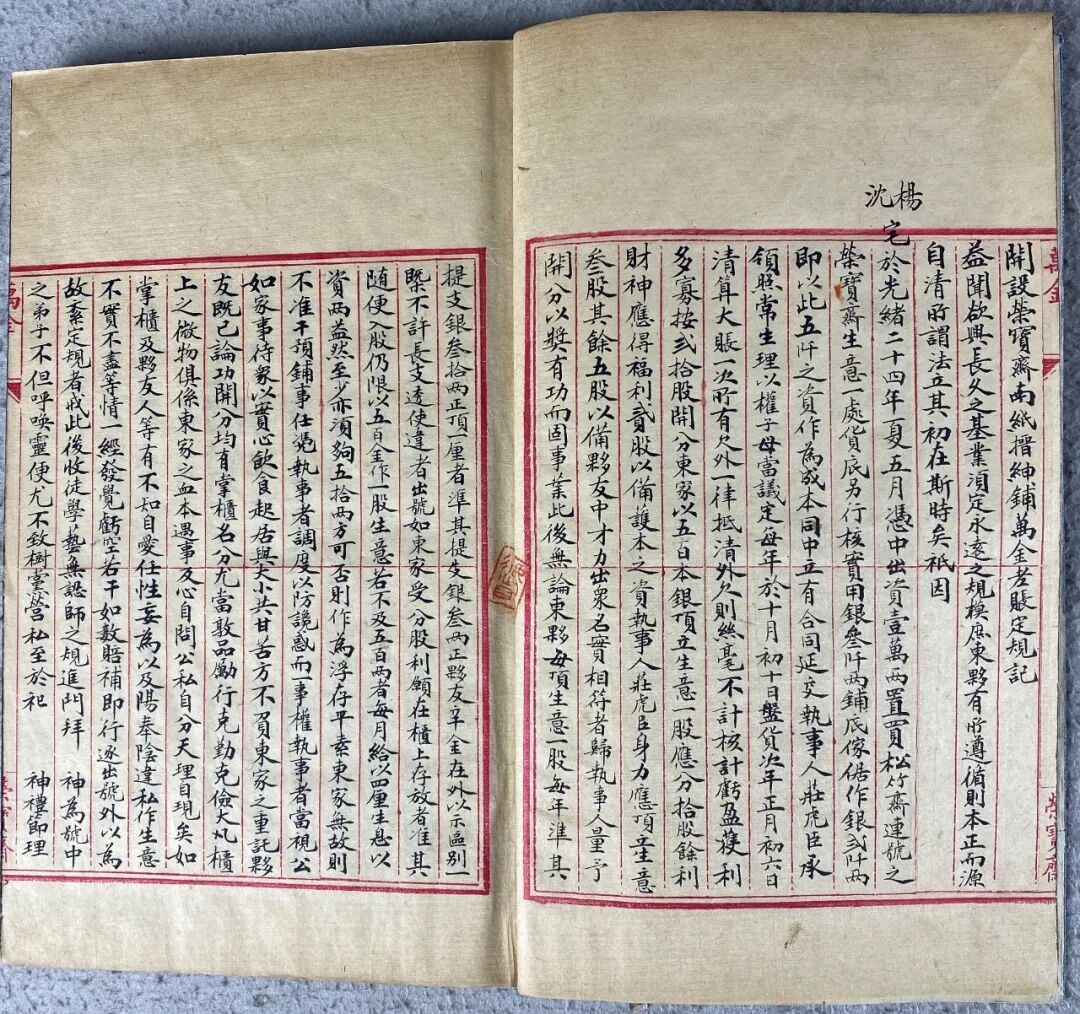 開設榮寶齋南紙搢紳鋪萬金老賬定規記
益聞欲興長久之基業須定永遠之規模庶東夥有所遵循則本正而源
自清所謂法立其初在斯時矣祇因
楊
沈
宅於光緒二十四年夏五月憑中出資壹萬兩置買松竹齋連號之
榮寶齋生意一處貨底另行核實用銀叄仟兩鋪底傢俱作銀弍仟兩
即以此五仟之資作為成本同中立有合同延安執事人莊虎臣承
領照常生理以權子母當議定每年於十月初十日盤貨次年正月初六日
清算大賬一次所有欠外一律抵清外欠則絲毫不計核計虧盈獲利
多寡按弍拾股開分東家以五百本銀頂立生意一股應分拾股餘利
財神應得福利貳股以備護本之資執事人莊虎臣身力應頂生意
叄股其餘五股以備夥友中才力出眾名實相符者歸執事人量予
開分以獎有功而固事業此後無論東夥每頂生意一股每年準其
提支銀叄拾兩正頂一厘者準其提支銀叄兩正夥友辛金在外以示區別一
槩不許長支透使違者出號如東家受分股利願在櫃上存放者准其
隨便入股仍限以五百金作一股生意若不及五百兩者每月給以四厘生息以
資兩益然至少亦須夠五拾兩方可否則作為浮存平素東家無故則
不准干預鋪事任凴執事者調度以防譏惑而一事權執事者當視公
如家事待眾以實心飲食起居與大小共甘苦方不負東家之重託夥
友既已論功開分均有掌櫃名分尤當敦品勵行克勤克儉大凡櫃
上之微物俱係東家之血本遇事反心自問公私自分天理自現矣如
掌櫃及夥友人等有不知自愛任性妄為以及陽奉陰違私作生意
不實不盡等情一經發覺虧空若干如數賠補即行逐出號外以為
故紊定規者戒此後收徒學藝無誤師之規進門拜 神為號中
之弟子不但呼喚靈便尤不致樹黨營私至於祀 神禮節理
萬金
榮寶齋